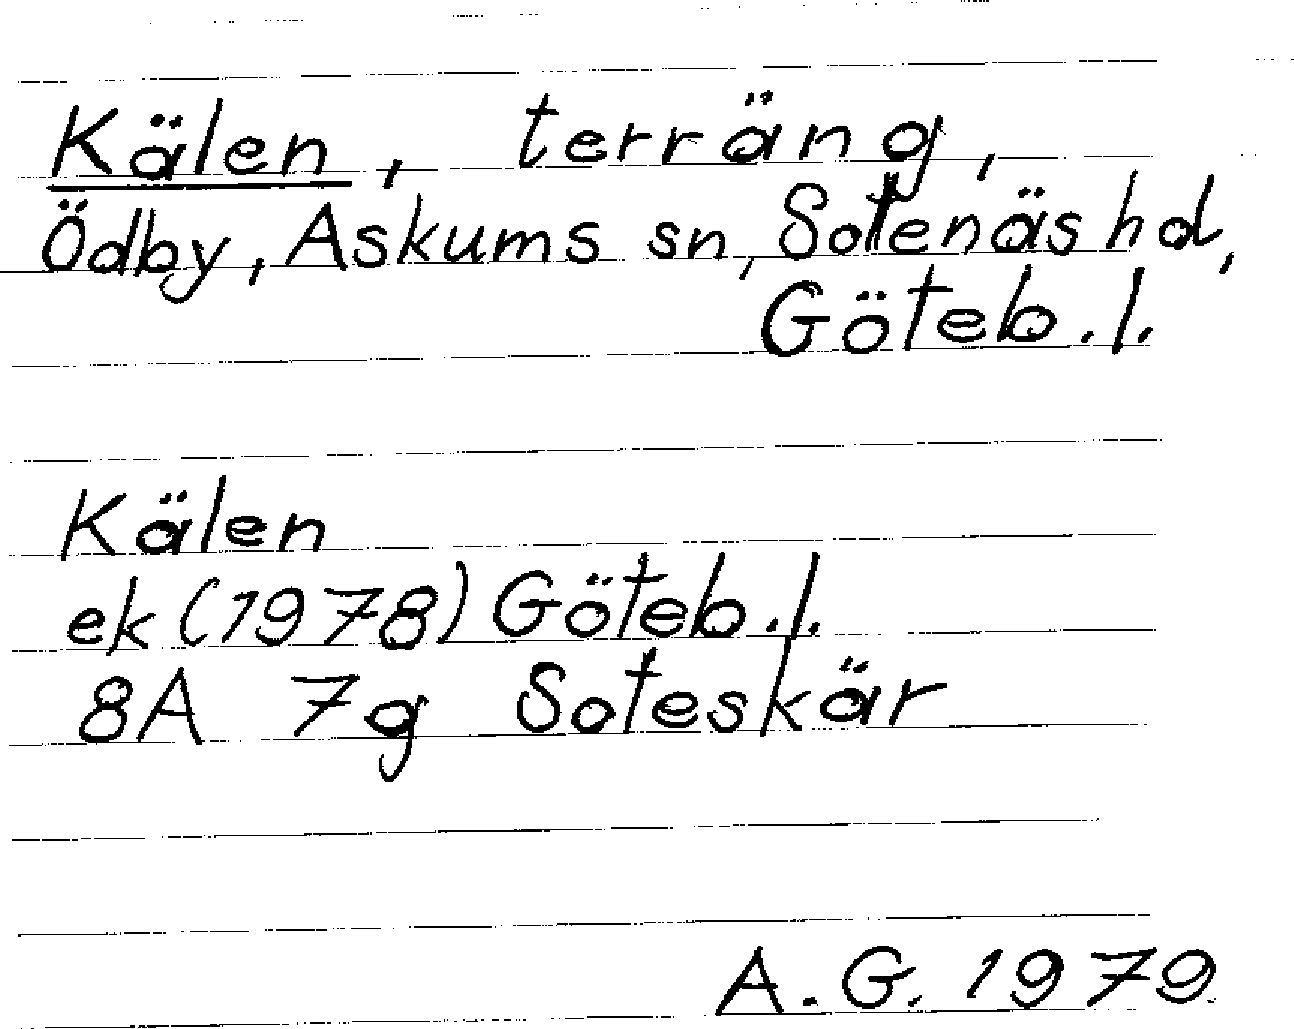 Kälen, terräng,
Ödby, Askums sn, Sotenäs hd,
Göteb.l.
Kälen
ek (1978) Göteb.l.
8A 7g Soteskär
A.G. 1979